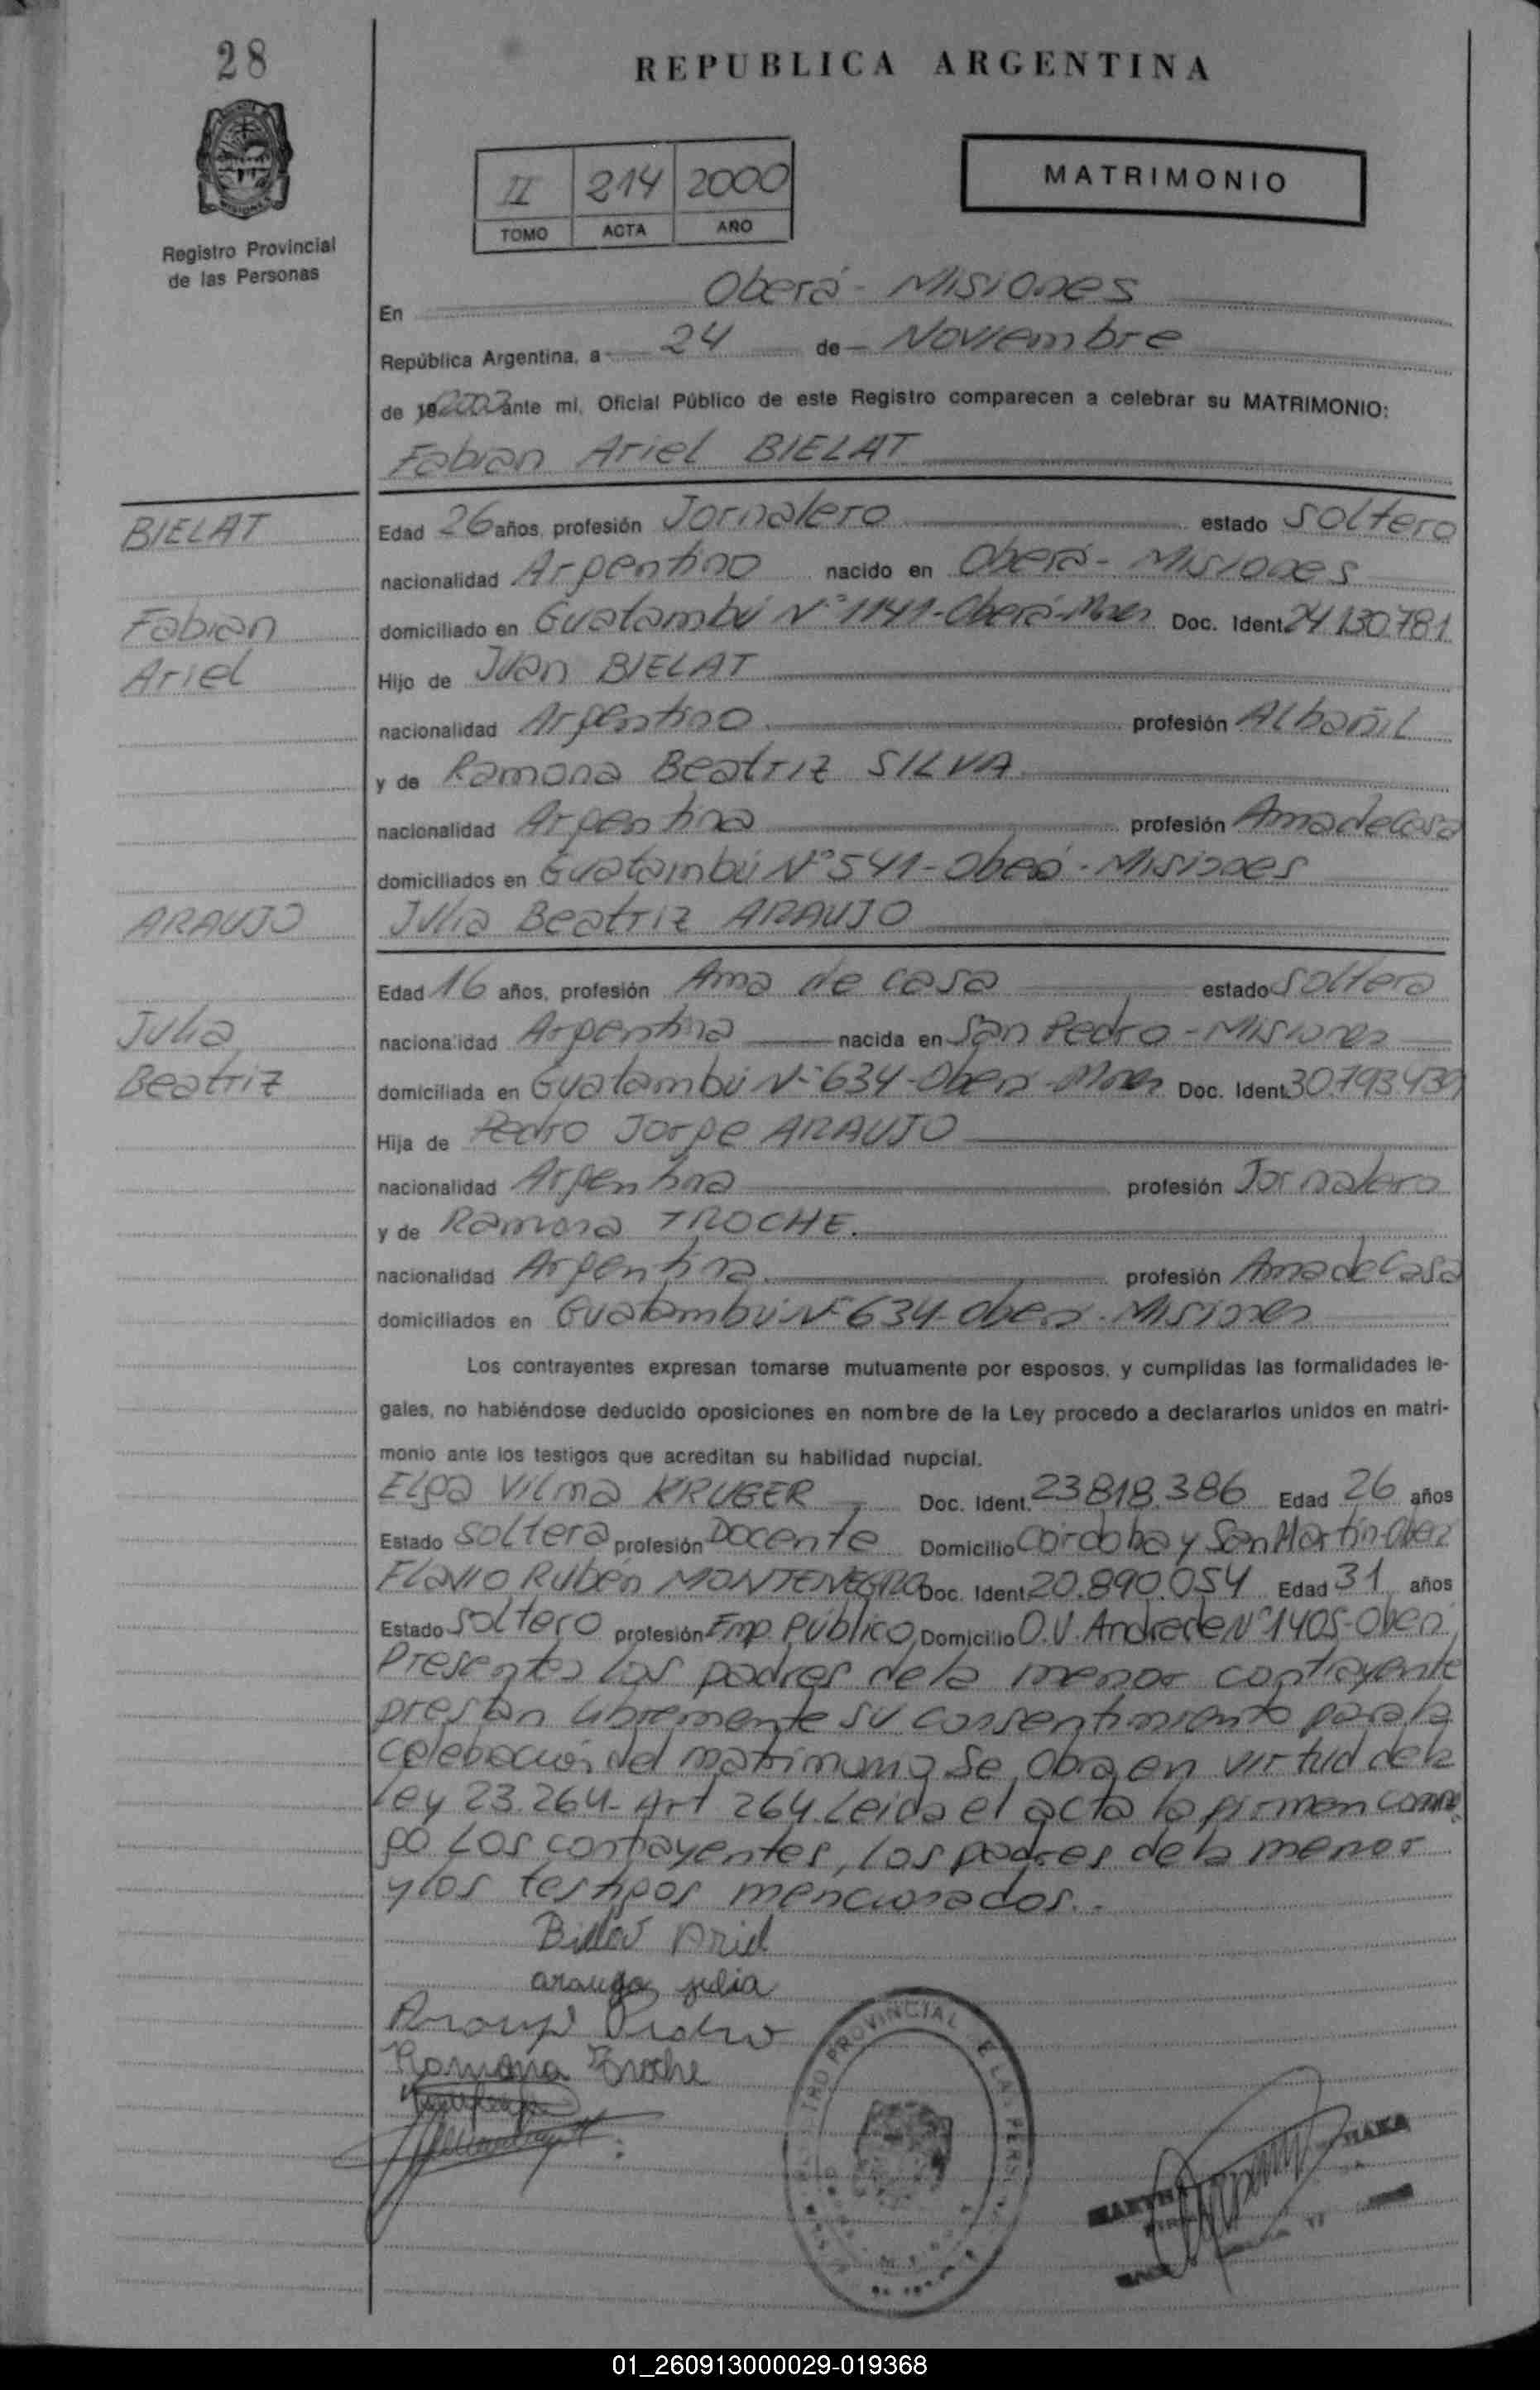 28
REPUBLICA ARGENTINA
Registro Provincial
de las Personas
II 214 2000
TOMO ACTA AÑO
MATRIMONIO
En Oberá - Misiones
República Argentina, a 24 de Noviembre
de 19 2000 ante mi, Oficial Público de este Registro comparecen a celebrar su MATRIMONIO:
Fabian Ariel BIELAT
BIELAT
Fabian
Ariel
Edad 26 años, profesión Jornalero estado soltero
nacionalidad Argentino nacido en Oberá - Misiones
domiciliado en Guatambú N° 1141-Oberá-Mnes Doc. Ident. 24.130.781
Hijo de Juan BIELAT
nacionalidad Argentino profesión Albañil
y de Ramona Beatriz SILVA
nacionalidad Argentina profesión Ama de Casa
domiciliados en Guatambú N° 541-Oberá - Misiones
ARAUJO
Julia Beatriz ARAUJO
Julia
Beatriz
Edad 16 años, profesión Ama de casa estado soltera
nacionalidad Argentina nacida en San Pedro - Misiones
domiciliada en Guatambú N° 634-Oberá-Mnes Doc. Ident. 30.793.439
Hija de Pedro Jorge ARAUJO
nacionalidad Argentina profesión Jornalero
y de Ramona TROCHE.
nacionalidad Argentina profesión Ama de Casa
domiciliados en Guatambú N° 634-Oberá - Misiones
Los contrayentes expresan tomarse mutuamente por esposos, y cumplidas las formalidades le-
gales, no habiéndose deducido oposiciones en nombre de la Ley procedo a declararlos unidos en matri-
monio ante los testigos que acreditan su habilidad nupcial.
Elga Vilma KRUGER Doc. Ident. 23.818.386 Edad 26 años
Estado soltera profesión Docente Domicilio Córdoba y San Martín-Oberá
Flavio Rubén MONTENEGRO Doc. Ident. 20.890.054 Edad 31 años
Estado soltero profesión Emp. Público Domicilio O.V. Andrade N° 1405-Oberá
Presentes los padres de la menor contrayente
prestan libremente su consentimiento para la
celebración del matrimonio se obra en virtud de la
Ley 23.264- Art 264. Leida el acta la firman conmi
go los contrayentes, los padres de la menor
y los testigos mencionados..
Bielat Ariel
araujo julia
Araujo Pedro
Ramona Troche
PROVINCIAL
01_260913000029-019368